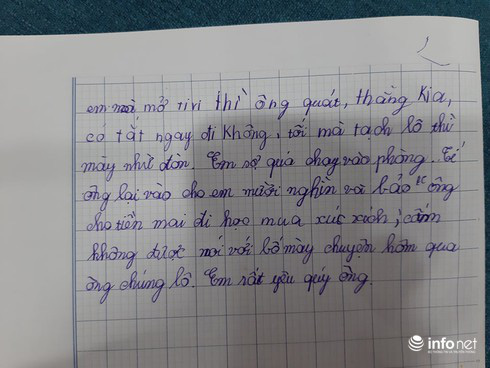 em mới mở tivi thì ông quát, thằng kia,
có tắt ngay đi không, tối mà tạch lô thì
mày nhừ đòn. Em sợ quá chạy vào phòng. Tí
ông lại vào cho em mười nghìn và bảo "ông
cho tiền mai đi học mua xúc xích, cấm
không được nói với bố mày chuyện hôm qua
ông chúng lô. Em rất yêu quý ông.
infonet